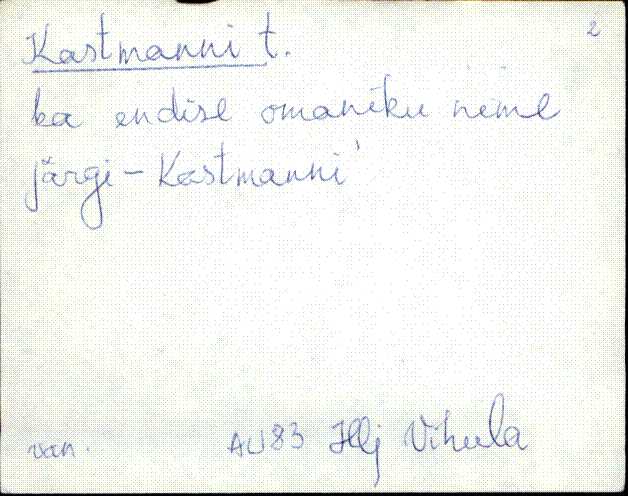 2
Kastmanni t.
ka endise omaniku nime
järgi – Kastmanni'
van. AU83 Hlj Vihula